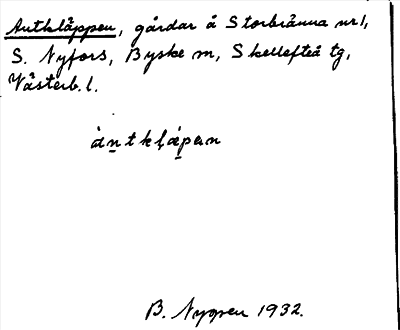 Antkläppen, gårdar å Storbränna nr 1,
S. Nyfors, Byske sn, Skellefteå tg,
Västerb. l.
àntkḷápan
B. Nygren 1932.